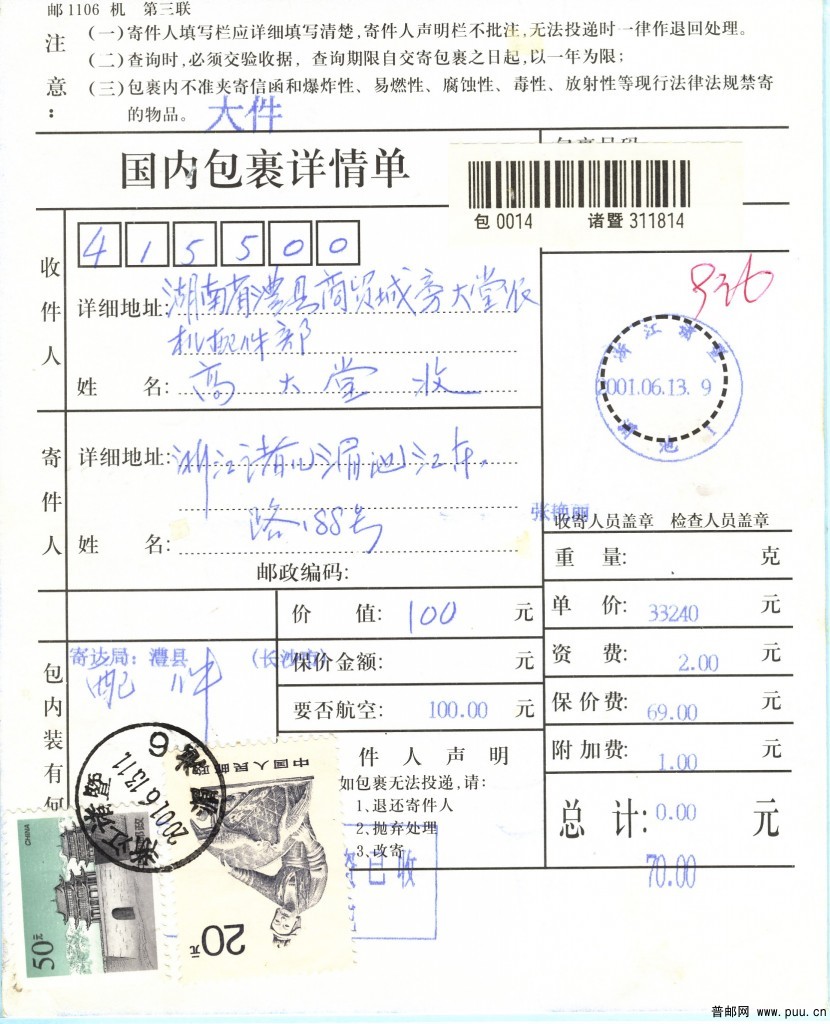 邮1106 机 第三联
注意：
(一)寄件人填写栏应详细填写清楚,寄件人声明栏不批注,无法投递时一律作退回处理。
(二)查询时,必须交验收据,查询期限自交寄包裹之日起,以一年为限;
(三)包裹内不准夹寄信函和爆炸性、易燃性、腐蚀性、毒性、放射性等现行法律法规禁寄
的物品。
大件
国内包裹详情单
包0014 诸暨 311814
收件人
415500
详细地址: 湖南省澧县商贸城旁大堂农
机配件部
姓 名: 高大堂 收
浙江诸暨
2001.06.13. 9
湄池 1
寄件人
详细地址: 浙江诸山湄池江东
路188号
姓 名:
邮政编码:
张艳丽
收寄人员盖章 检查人员盖章
重 量: 克
单 价: 33240 元
资 费: 2.00 元
保价费: 69.00 元
附加费: 1.00 元
总 计: 0.00 元
70.00
价 值: 100 元
保价金额: 元
要否航空: 100.00 元
包内装有何
寄达局: 澧县 (长沙市)
配件
件人声明
如包裹无法投递,请:
1、退还寄件人
2、抛弃处理
3、改寄
已收
浙江诸暨
2001.6.13.11
6
中国人民邮政
20元
CHINA
50元
普邮网 www.puu.cn